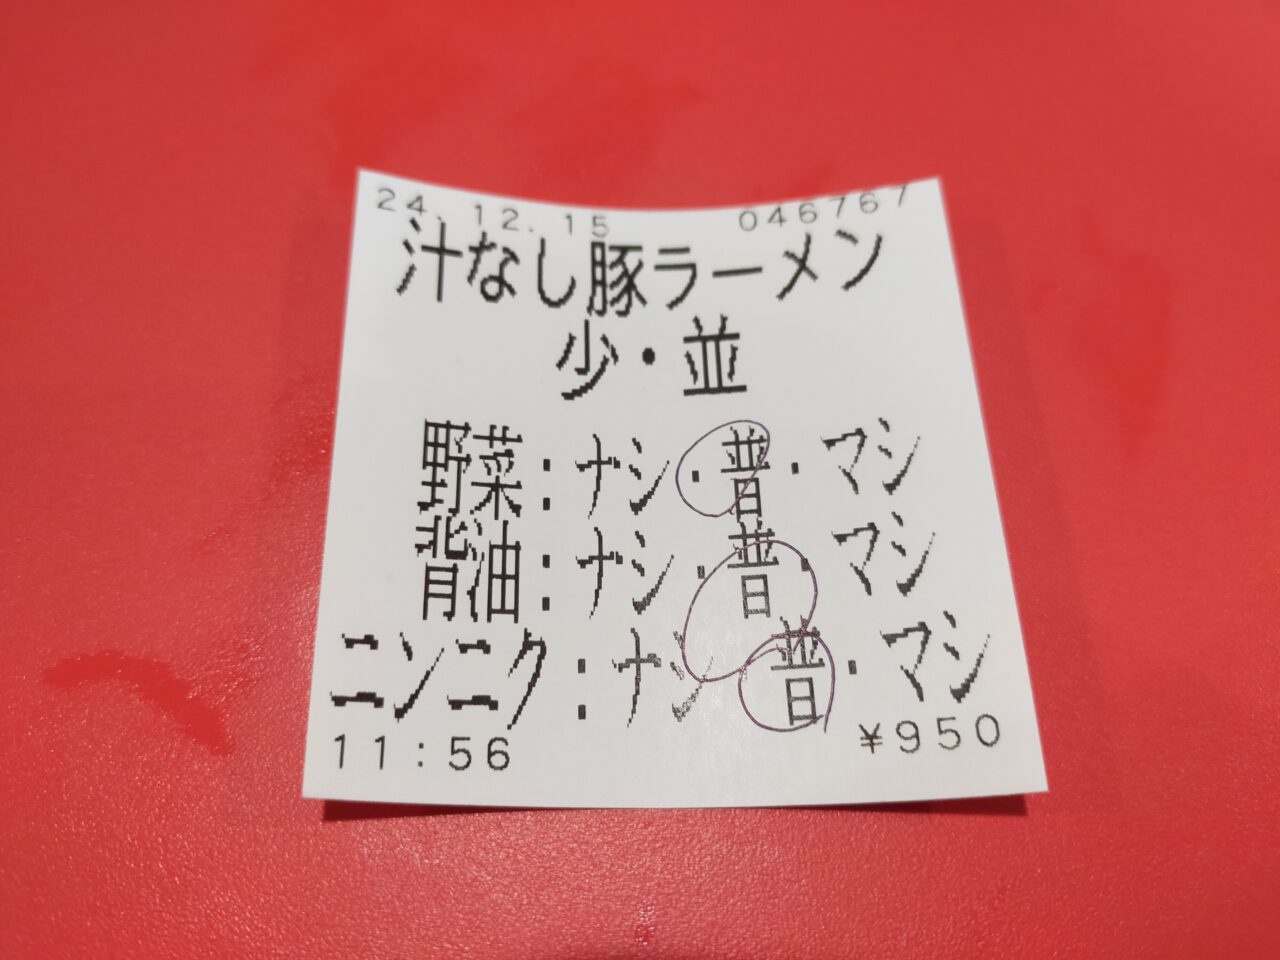 24.12.15 046767
汁なし豚ラーメン
少・並
野菜：ナシ・普・マシ
背油：ナシ・普・マシ
ニンニク：ナシ 普・マシ
11:56 ¥950